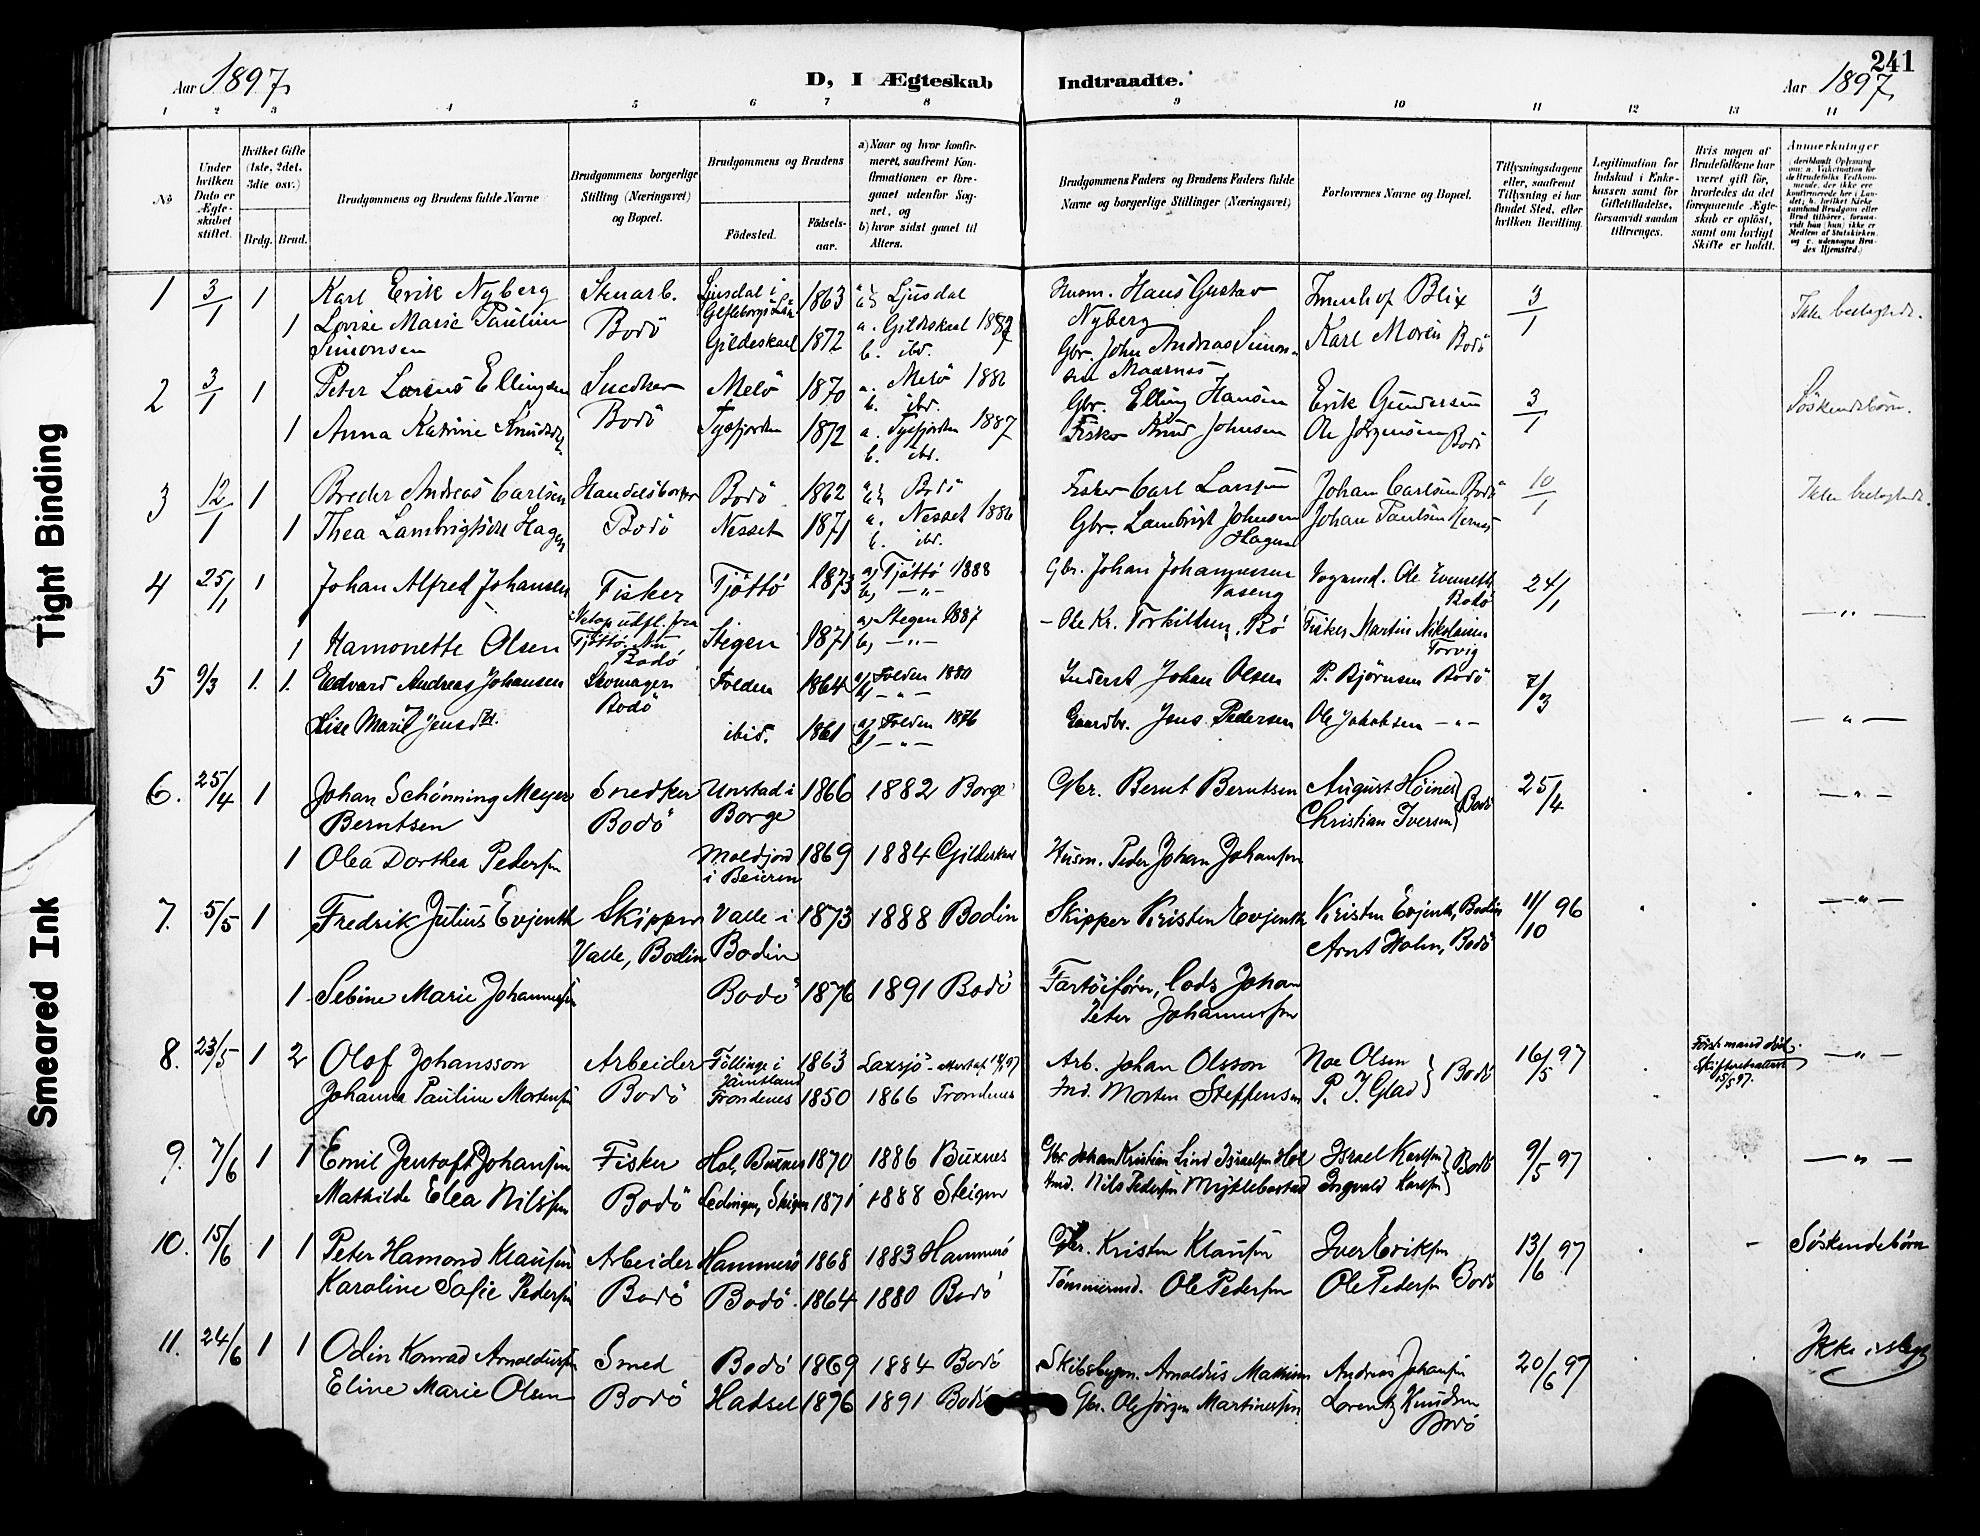 Tight Binding
Smeared Ink
241
Aar 1897.
D, I Ægteskab Indtraadte.
Aar 1897.
1 2 3 4 5 6 7 8 9 10 11 12 13 14
No
Under hvilken Dato er Ægteskabet stiftet.
Hvilket Gifte (1ste, 2det, 3die osv.)
Brdg. Brud.
Brudgommens og Brudens fulde Navne
Brudgommens borgerlige Stilling (Næringsvei) og Bopæl.
Brudgommens og Brudens
Födested.
Födselsaar.
a) Naar og hvor konfirmeret, saafremt Konfirmationen er foregaaet udenfor Sognet, og
b) hvor sidst gaaet til Alters.
Brudgommens Faders og Brudens Faders fulde Navne og borgerlige Stillinger (Næringsvei)
Forlovernes Navne og Bopæl.
Tillysningsdagene eller, saafremt Tillysning ei har fundet Sted, efter hvilken Bevilling.
Legitimation for Indskud i Enkekassen samt for Giftetilladelse, forsaavidt saadan tiltrænges.
Hvis nogen af Brudefolkene har været gift för, hvorledes da det foregaaende Ægteskab er oplöst, samt om lovligt Skifte er holdt.
Anmærkninger
1 3/1 1 Karl Erik Nyberg Stenarb. Ljusdal i 1863 Ljusdal Husm. Hans Gustav Blix 3/1
Gefleborgs Län Nyberg
1 Lovise Marie Pauline Bodö Gildeskaal 1872 a. Gildeskaal 1887 Gbr. John Andreas Simon- Karl Morén Bodö
Simonsen b. ibd. sen
2 3/1 1 Peter Lærens Ellingsen Snedker Melö 1870 a. Melö 1886 Gbr. Elling Hansen Erik Gundersen 3/1 Söskendebörn.
b. ibd.
1 Anna Katrine Knudsdtr Bodö Tysfjorden 1872 a. Tysfjorden 1887 Fisker Knud Johnsen Ole Jörgensen Bodö
b. ibd.
3 12/1 1 Breder Andreas Carlsen Bodö 1862 Bodö Fisker Carl Larsen Johan Carlsen Bodö 10/1
1 Thea Lambrigtsen Hagen Bodö Nesset 1871 a. Nesset 1886 Gbr. Lambrigt Johnsen Johan Paulsen
b. ibd. Hagen
4 25/1 1 Johan Alfred Johansen Fisker Tjöttö 1873 a) Tjöttö 1888 Gbr. Johan Johannessen Vognmd. Ole Evensen 24/1
b) — " — Vaseng Bodö
1 Hamonette Olsen Netop udfl. fra Tjöttö. Nu Bodö Stegen 1871 a) Stegen 1887 - Ole Kr. Torkildsen, Bö Fisker Martin Nikolaisen — " —
b) — " — Torvig
5 9/3 1. 1. Edvard Andreas Johansen Skomager Folden 1864 a) Folden 1880 Inderst Johan Olsen P. Bjørnsen Bodö 7/3
Bodö b) — " —
Lise Marit Jensdtr. ibid. 1861 a) Folden 1876 Gaardbr. Jens Pedersen Ole Jakobsen — " — — " —
b) — " —
6. 25/4 1 Johan Schönning Meyer Snedker Unstad i 1866 1882 Borge Gbr. Bernt Berntsen August Höines 25/4 — " —
Berntsen Bodö Borge Christian Iversen Bodö
1 Olea Dorthea Pedersen Moldjord 1869 1884 Gildeskaal Husm. Peder Johan Johansen
i Beieren
7. 5/5 1 Fredrik Julius Evjenth Skipper Valle i 1873 1888 Bodin Skipper Kristen Evjenth Kristen Evjenth, Bodin 11/10 96 — " —
Valle, Bodin Bodin Arnt Holm, Bodö
1 Sebine Marie Johannesen Bodö 1876 1891 Bodö Fartöiförer, Lods Johan
Peter Johannesen
8. 23/5 1 2 Olof Johansson Arbeider Föllinge i 1863 Laxsjö Arb. Johan Olsson Noe Olsen 16/5 97 Förste mand död. — " —
Jämtland Skifteattest 15/5 97.
Johanna Pauline Mortensen Bodö Trondenes 1850 1866 Trondenes Ind. Morten Steffensen P. J. Glad Bodö
9. 7/6 1 1 Emil Jentoft Johansen Fisker Hol, Buxnes 1870 1886 Buxnes Gbr Johan Kristian Lind Israelsen Hol Israel Karlsen Bodö 9/5 97 — " —
Mathilde Elea Nilssen Bodö Ledingen, Steigen 1871 1888 Steigen Nils Pedersen Myklebostad Ingvald Karlsen
10. 15/6 1 1 Peter Hamond Klausen Arbeider Hammerö 1868 1883 Hammerö Gbr. Kristen Klausen Iver Eriksen 13/6 97 Söskendebörn
Karoline Sofie Pedersen Bodö Bodö. 1864 1880 Bodö Tömmermd. Ole Pedersen Ole Pedersen Bodö
11. 24/6 1 1 Odin Konrad Arnoldussen Smed Bodö 1869 1884 Bodö Skibsbygm. Arnoldus Andreas Johansen 20/6 97 Ikke i slegt
Eline Marie Olsen Bodö Hadsel 1876 1891 Bodö Gbr. Ole Jörgen Martinussen Lorentz Knudsen
Bodö